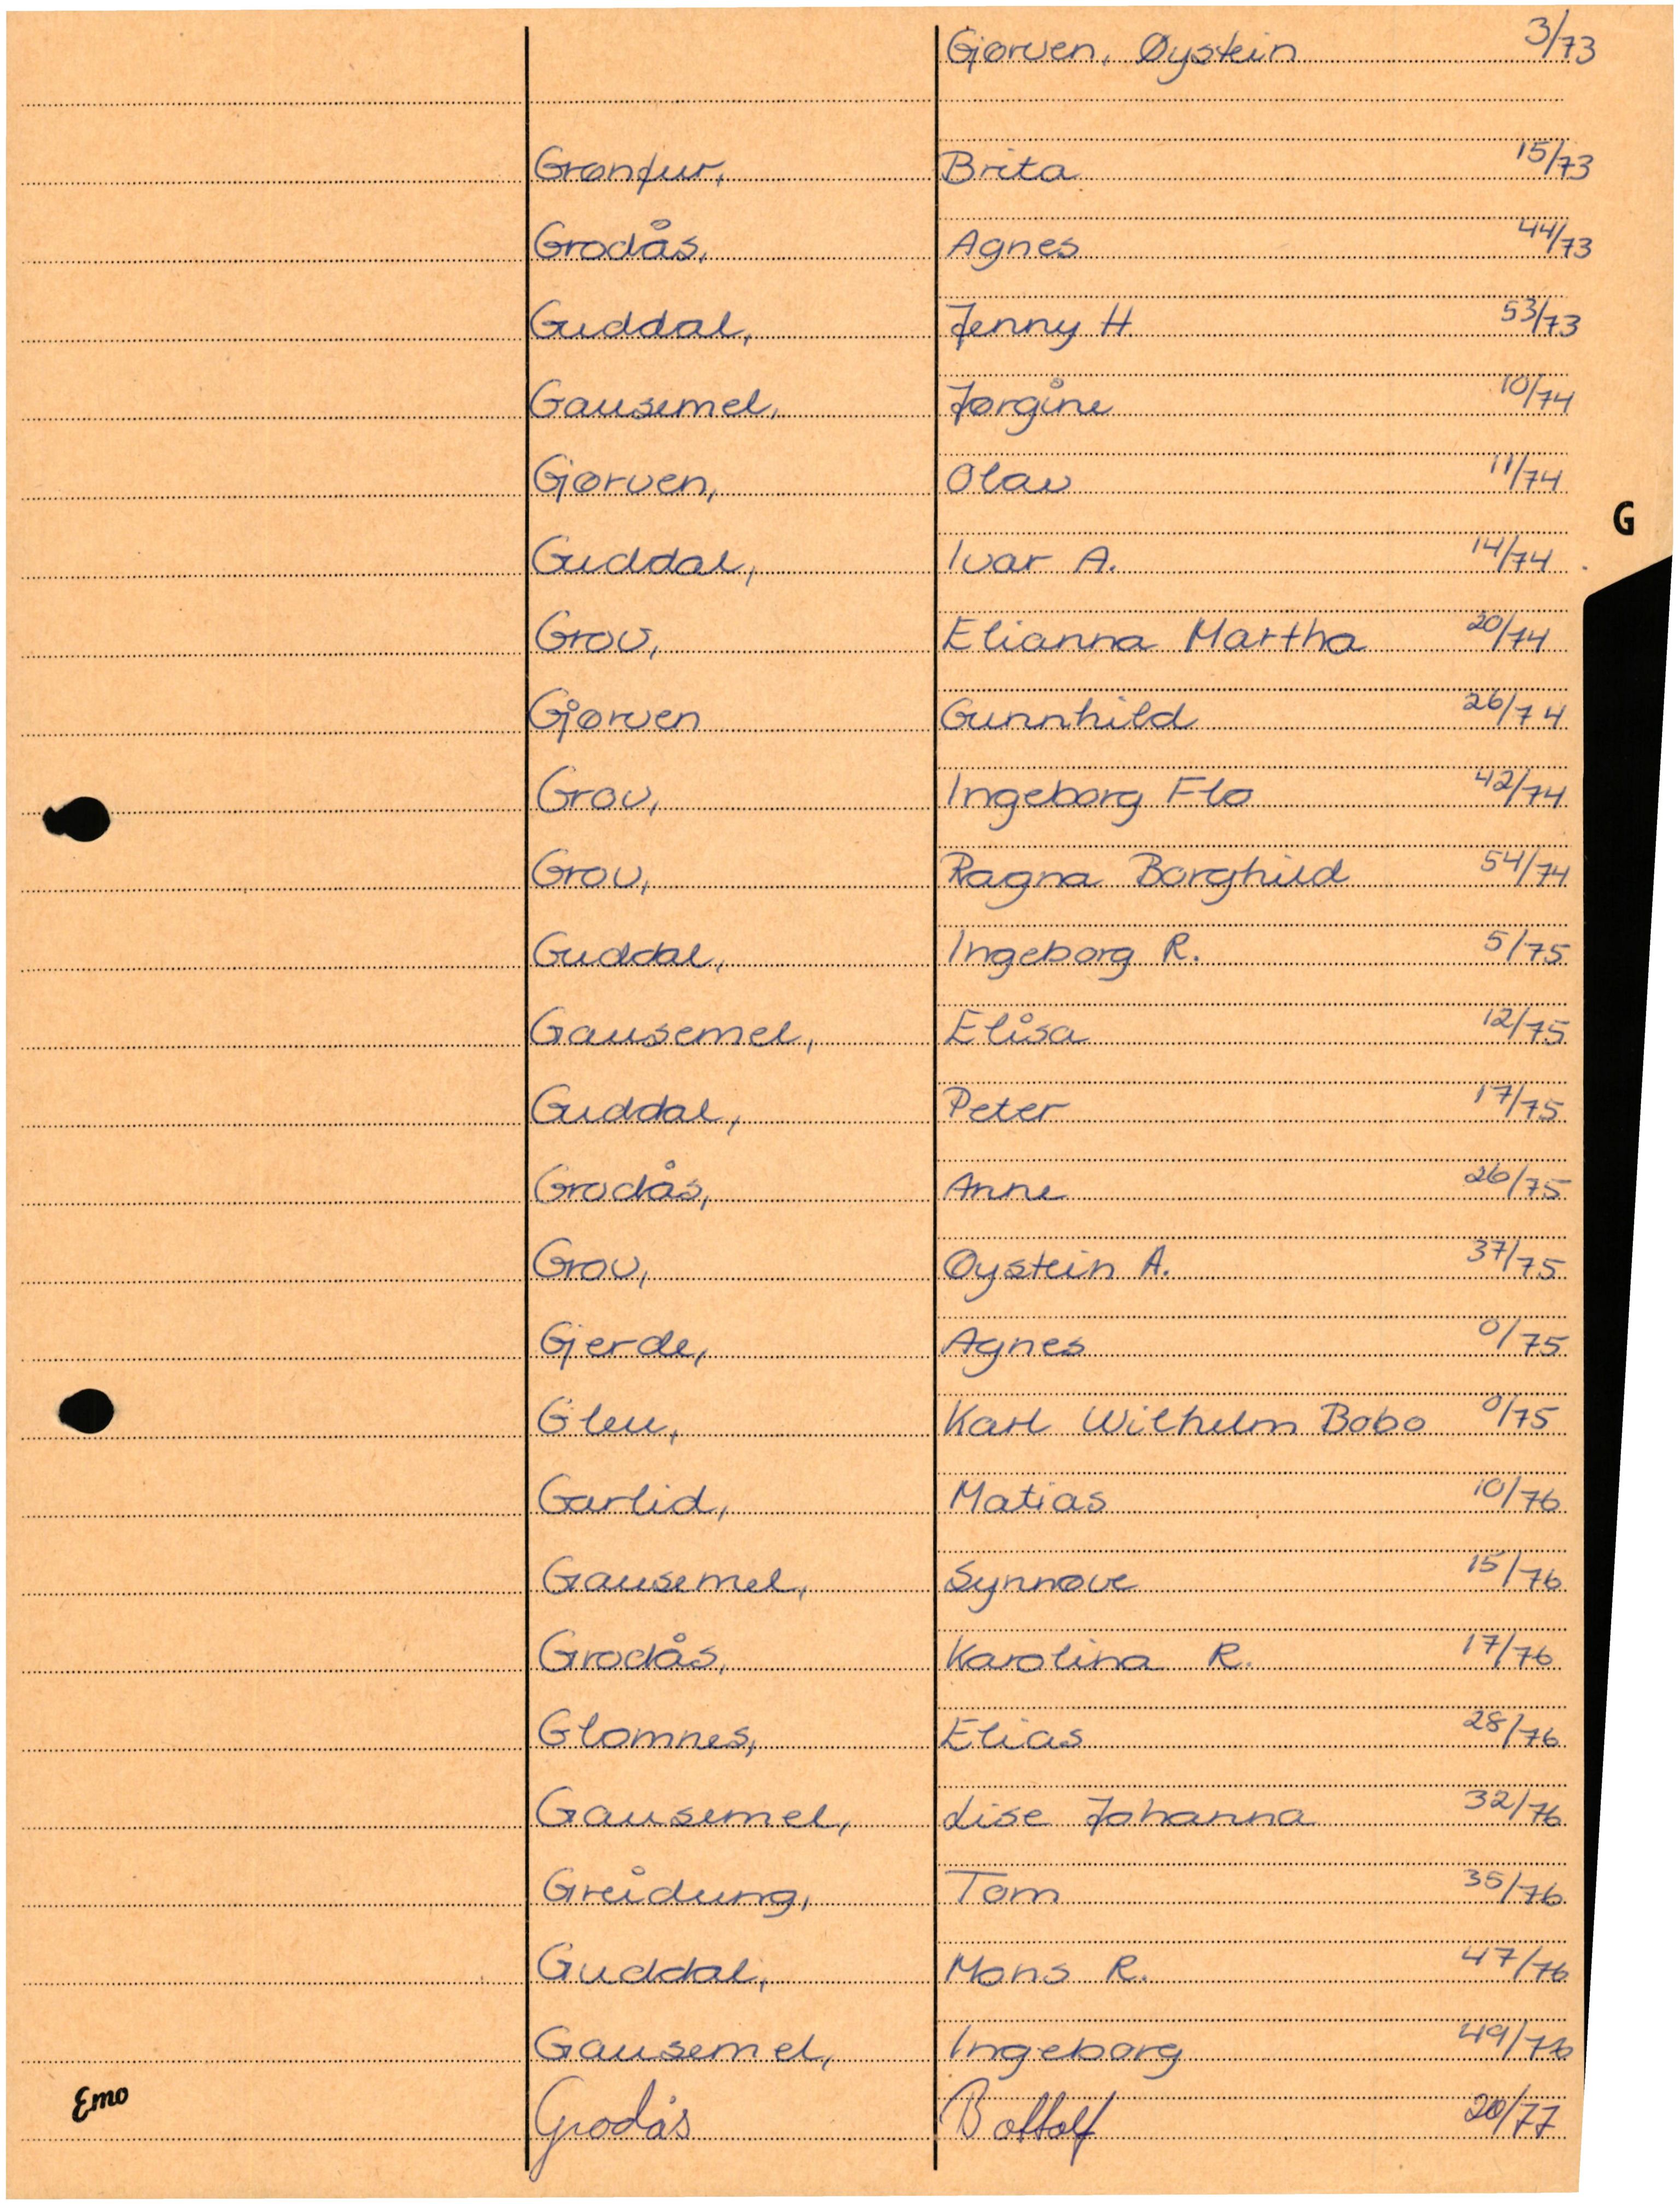 Gjørven, Øystein 3/73
Grønfur, Brita 15/73
Grodås, Agnes 44/73
Guddal, Jenny H. 53/73
Gausemel, Jørgine 10/74
Gjørven, Olav 11/74
G
Guddal, Ivar A. 14/74
Grov, Elianna Martha 20/74
Gjørven Gunnhild 26/74
Grov, Ingeborg Flo 42/74
Grov, Ragna Borghild 54/74
Guddal, Ingeborg R. 5/75
Gausemel, Elisa 12/75
Guddal, Peter 17/75
Grodås, Anne 26/75
Grov, Øystein A. 37/75
Gjerde, Agnes 0/75
Gleu, Karl Wilhelm Bobo 0/75
Garlid, Matias 10/76
Gausemel, Synnøve 15/76
Grodås, Karolina R. 17/76
Glomnes, Elias 28/76
Gausemel, Lise Johanna 32/76
Greidung, Tom 35/76
Guddal, Mons R. 47/76
Gausemel, Ingeborg 49/76
Emo
Grodås Bottolf 20/77